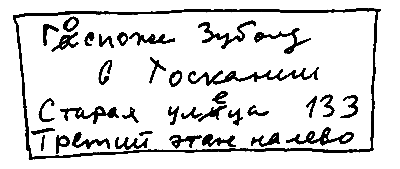 Госпожи
в Тоскании
Старая улеца 133
Третий этаж налево